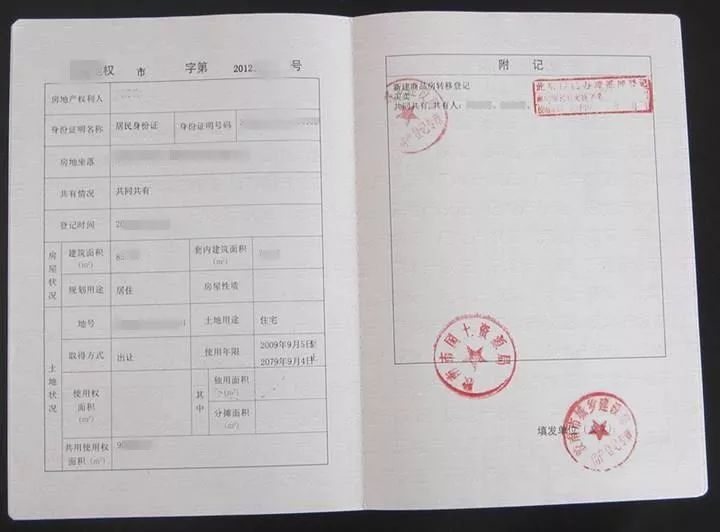 权 市 字第 2012 号
房地产权利人
身份证明名称 居民身份证 身份证明号码
房地坐落
共有情况 共同共有
登记时间 20
房屋状况
建筑面积(m²) 8 套内建筑面积(m²)
规划用途 居住 房屋性质
土地状况
地号 土地用途 住宅
取得方式 出让 使用年限 2009年9月5日至
2079年9月4日
使用权面积(m²) 其中 独用面积(m²)
分摊面积(m²)
共用使用权面积(m²) 9
附 记
新建商品房转移登记
买卖
共同共有,共有人:
市国土资源局
市城乡建设
填发单位(